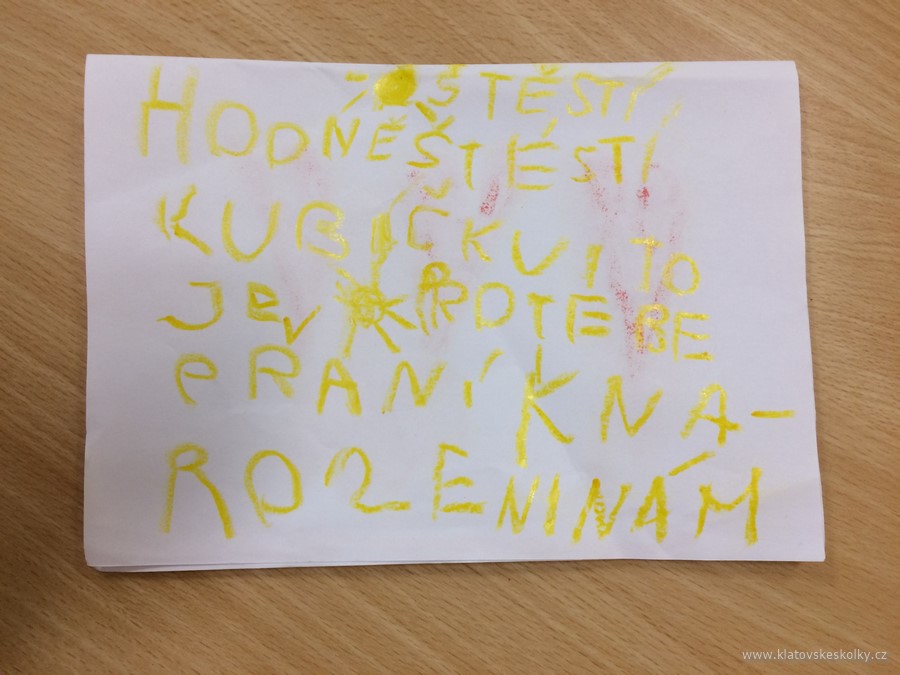 ŠTĚSTÍ
HODNĚ ŠTĚSTÍ
KUBÍČKU! TO
JE PRO TEBE
PŘÁNÍ K NA-
ROZENINÁM
www.klatovskeskolky.cz